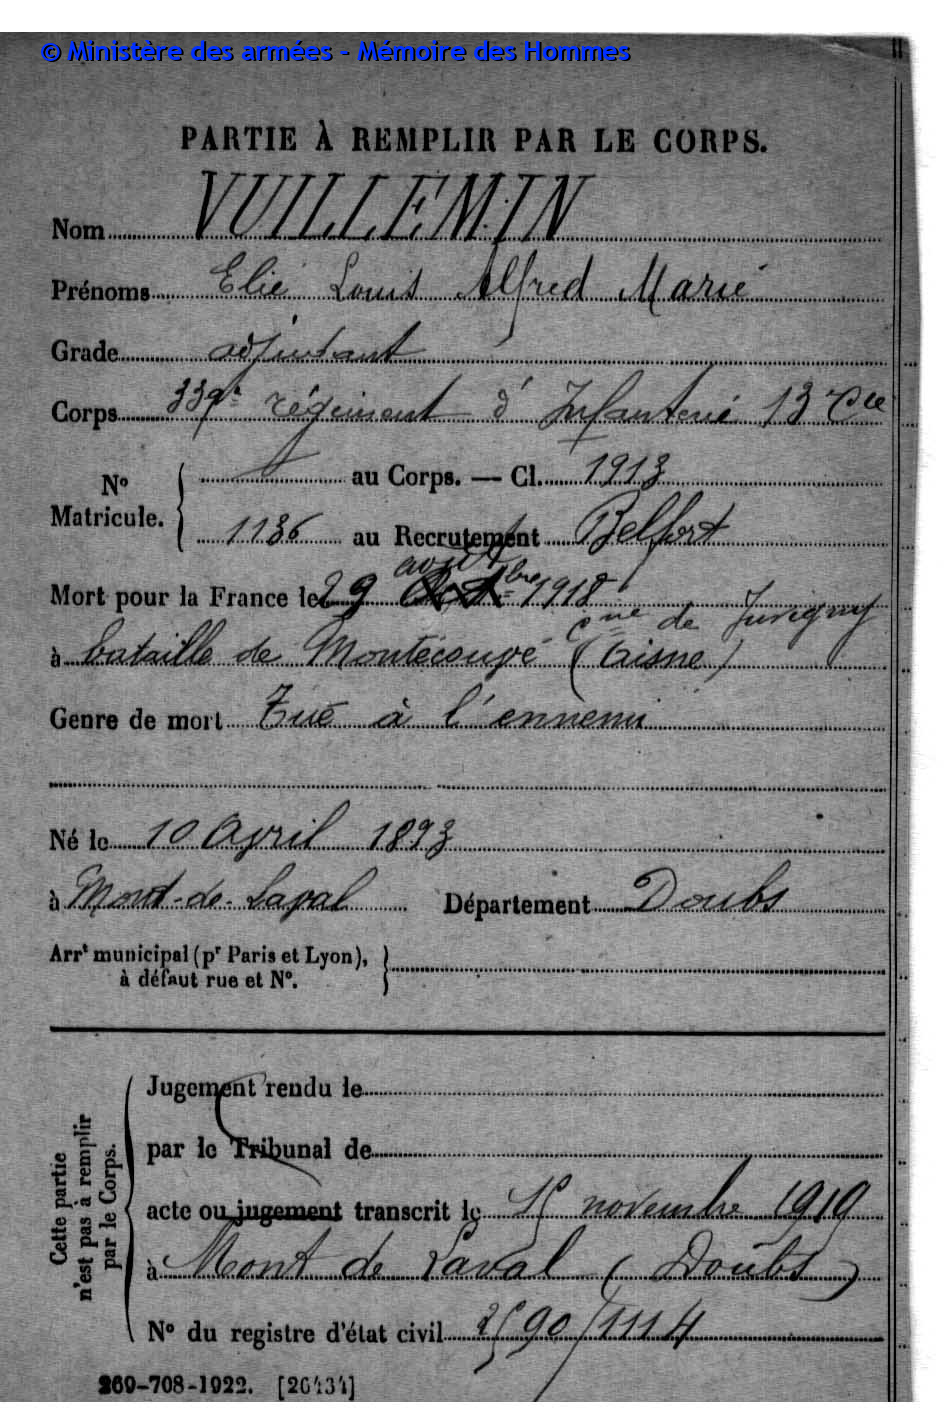 © Ministère des armées - Mémoire des Hommes
PARTIE À REMPLIR PAR LE CORPS.
Nom VUILLEMIN
Prénoms Elie Louis Alfred Marie
Grade adjudant
Corps 339e régiment d'Infanterie 13 Cie
No Matricule. { au Corps. — Cl. 1913
1136 au Recrutement Belfort
août
Mort pour la France le 29 bre 1918
Cne de Juvigny
à bataille de Montécouvé (Aisne)
Genre de mort Tué à l'ennemi
Né le 10 Avril 1893
à Mont-de-Laval Département Doubs
Arrt municipal (pr Paris et Lyon), à défaut rue et No.
Cette partie n'est pas à remplir par le Corps.
Jugement rendu le
par le Tribunal de
acte ou jugement transcrit le 15 novembre 1919
à Mont de Laval (Doubs)
No du registre d'état civil 2590/1114
269-708-1922. [26434]